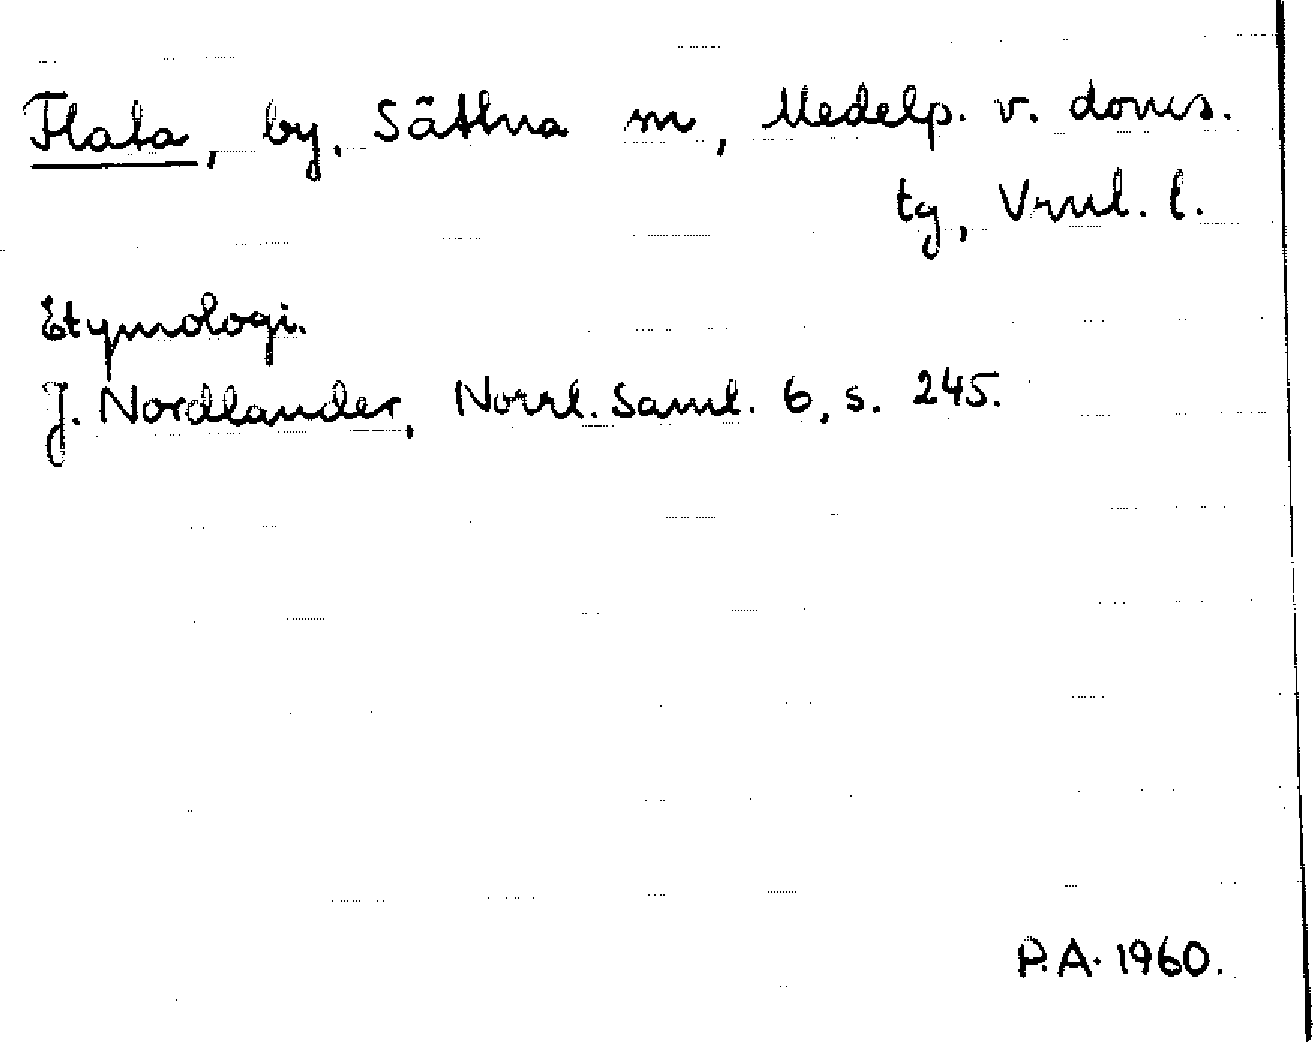 Flata, by, Sättna sn, Medelp. v. doms.
tg, Vrnl. l.
Etymologi.
J. Nordlander, Norrl. Saml. 6, s. 245.
P.A. 1960.